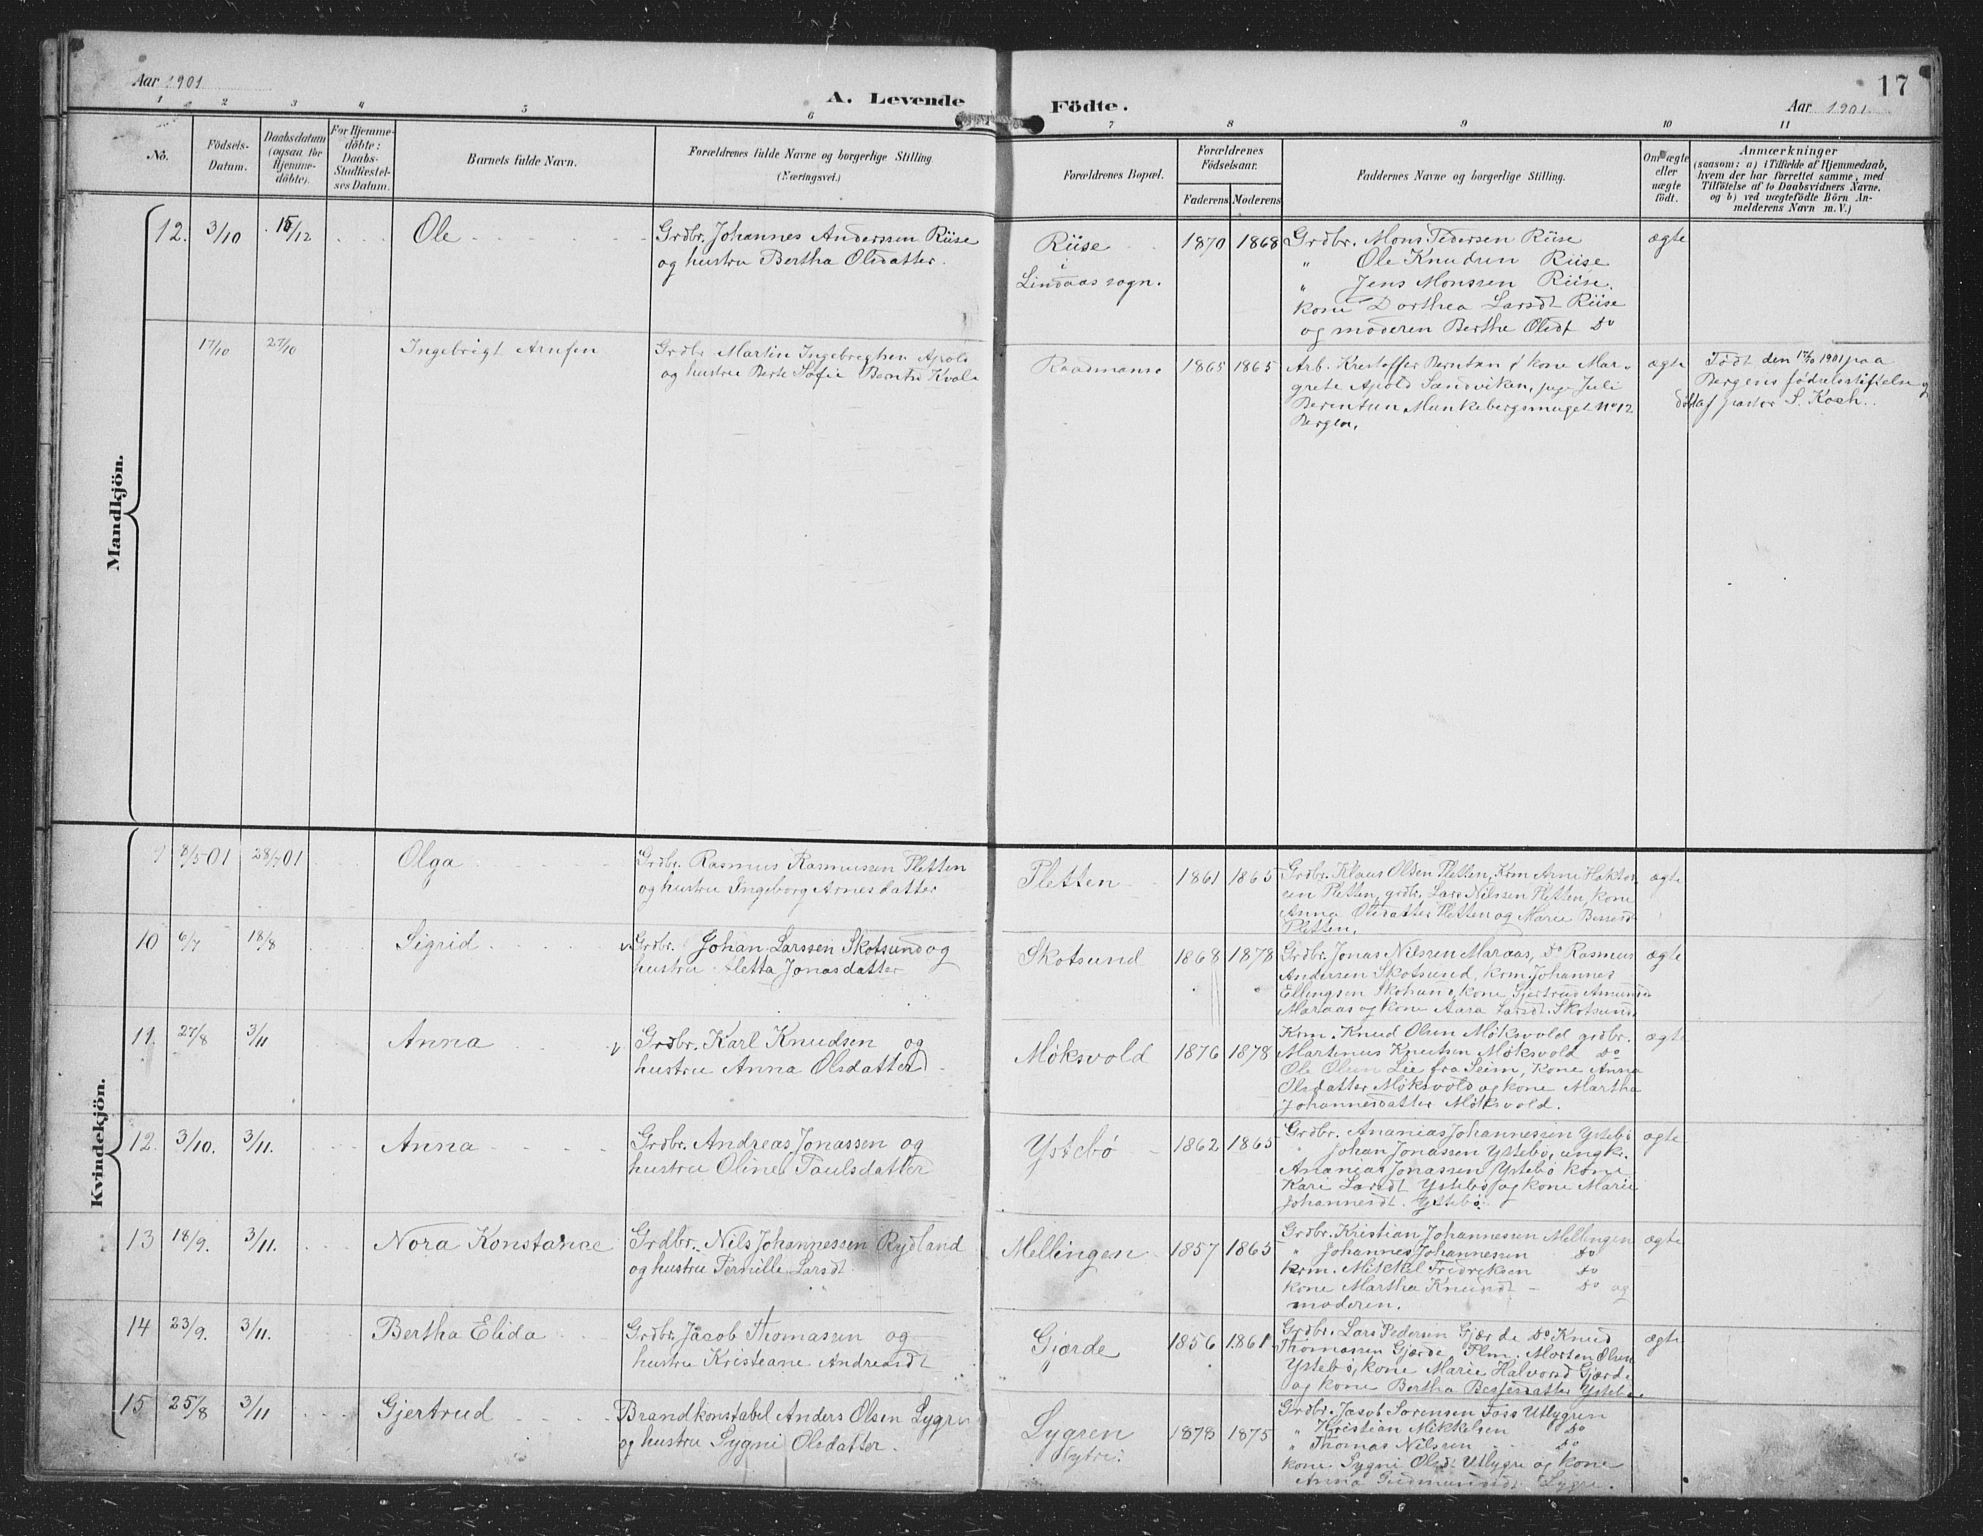 Aar 1901
A. Levende
Födte.
17
Aar 1901
1 2 3 4 5 6 7 8 9 10 11
No.
Födsels-
Datum.
Daabsdatum
(ogsaa for
Hjemme-
döbte).
For Hjemme-
döbte:
Daabs-
Stadfæstel-
ses Datum.
Barnets fulde Navn.
Forældrenes fulde Navne og borgerlige Stilling.
(Næringsvei.)
Forældrenes Bopæl.
Forældrenes
Födselsaar.
Faderens Moderens
Faddernes Navne og borgerlige Stilling.
Om ægte
eller
uægte
födt.
Anmærkninger
(saasom: a) i Tilfælde af Hjemmedaab,
hvem der har forrettet samme, med
Tilföielse af to Daabsvidners Navne.
og b) ved uægtefödte Börn An-
melderens Navn m. V.)
Mandkjön.
12. 3/10 15/12 Ole
Grdbr. Johannes Anderssen Riise
og hustru Bertha Olsdatter.
Riise
i
Lindaas sogn.
1870 1868
Grdbr. Mons Pedersen Riise
" Ole Knudsen Riise
" Jens Monssen Riise.
kone Dorthea Larsdt Riise
og moderen Berthe Olsdt Do
ægte
17/10 27/10 Ingebrigt
Grdbr Martin Apold
og hustru Berte Sofie Berntd Kvale
1865 1865
Arb. Kristoffer Berntsen kone Mar-
grete Apold Sandviken, pige Juli
Berentsen Munkebergsmuget No 12
Bergen.
ægte
Født den 17/10 1901 paa
Bergens fødselsstiftelse og
døbt af pastor S. Koch.
Kvindekjön.
9 8/5 01 28/7 01 Olga
Grdbr. Rasmus Rasmussen Fletten
og hustru Ingeborg Arnesdatter
Fletten
1861 1865
Grdbr. Klaus Olsen Fletten, Krm Arne
sen Fletten, grdbr. Lars Nilssen Fletten, kone
Anna Olsdatter Fletten og Marie
Fletten.
ægte
10 6/7 18/8 Sigrid
Grdbr. Johan Larssen Skotsund og
hustru Aletta Jonasdatter
Skotsund
1868 1878
Grdbr. Jonas Nilssen Maraas, Do Rasmus
Andersen Skotsund, krm. Johannes
Ellingsen Skotsund, kone Gjertrud
Maraas og kone Larsdt. Skotsund.
ægte
11. 27/8 3/11 Anna
Grdbr. Karl Knudsen og
hustru Anna Olsdatter
Møksvold
1876 1878
Krm. Knud Olsen Møksvold grdbr.
Martinus Knutsen Møksvold Do
Ole Olsen Lie fra Seim, kone Anna
Olsdatter Møksvold og kone Martha
Johannesdatter Møksvold.
ægte
12. 3/10. 3/11. Anna
Grdbr. Andreas Jonassen og
hustru Oline Paulsdatter
Ystebø
1862 1865
Grdbr. Ananias Johannessen Ystebø
" Johan Jonassen Ystebø, ungkr.
Ananias Jonassen Ystebø kone
Kari Larsdt Ystebø og kone Marie
Johannesdt. Ystebø.
ægte
13 18/9. 3/11. Nora Konstance
Grdbr. Nils Johannessen Rydland
og hustru Pernille Larsdt
Mellingen
1857 1865
Grdbr. Kristian Johannessen Mellingen
" Johannes Johannessen Do
krm. Mikkel Fredriksen Do
kone Martha Knudsdt - Do og
moderen.
ægte
14 23/9. 3/11. Bertha Elida
Grdbr. Jacob Thomassen og
hustru Kristeane Andreasdt
Gjørde
1856 1861
Grdbr. Lars Pedersen Gjærde Do Knud
Thomassen Gjærde Flm. Morten Olsen
Ystebø, kone Marie Halvorsd Gjærde
og kone Bertha Bessesdatter Ystebø.
ægte
15 25/8 3/11 Gjertrud
Brandkonstabel Anders Olsen Lygre
og hustru Sygni Olsdatter.
Lygren
1878 1875
Grdbr. Jacob Sørensen Foss Utlygren
" Kristian Mikkelsen Do
" Thomas Nilssen Do
kone. Sygni Olsdt Utlygre og kone
Anna Lygre.